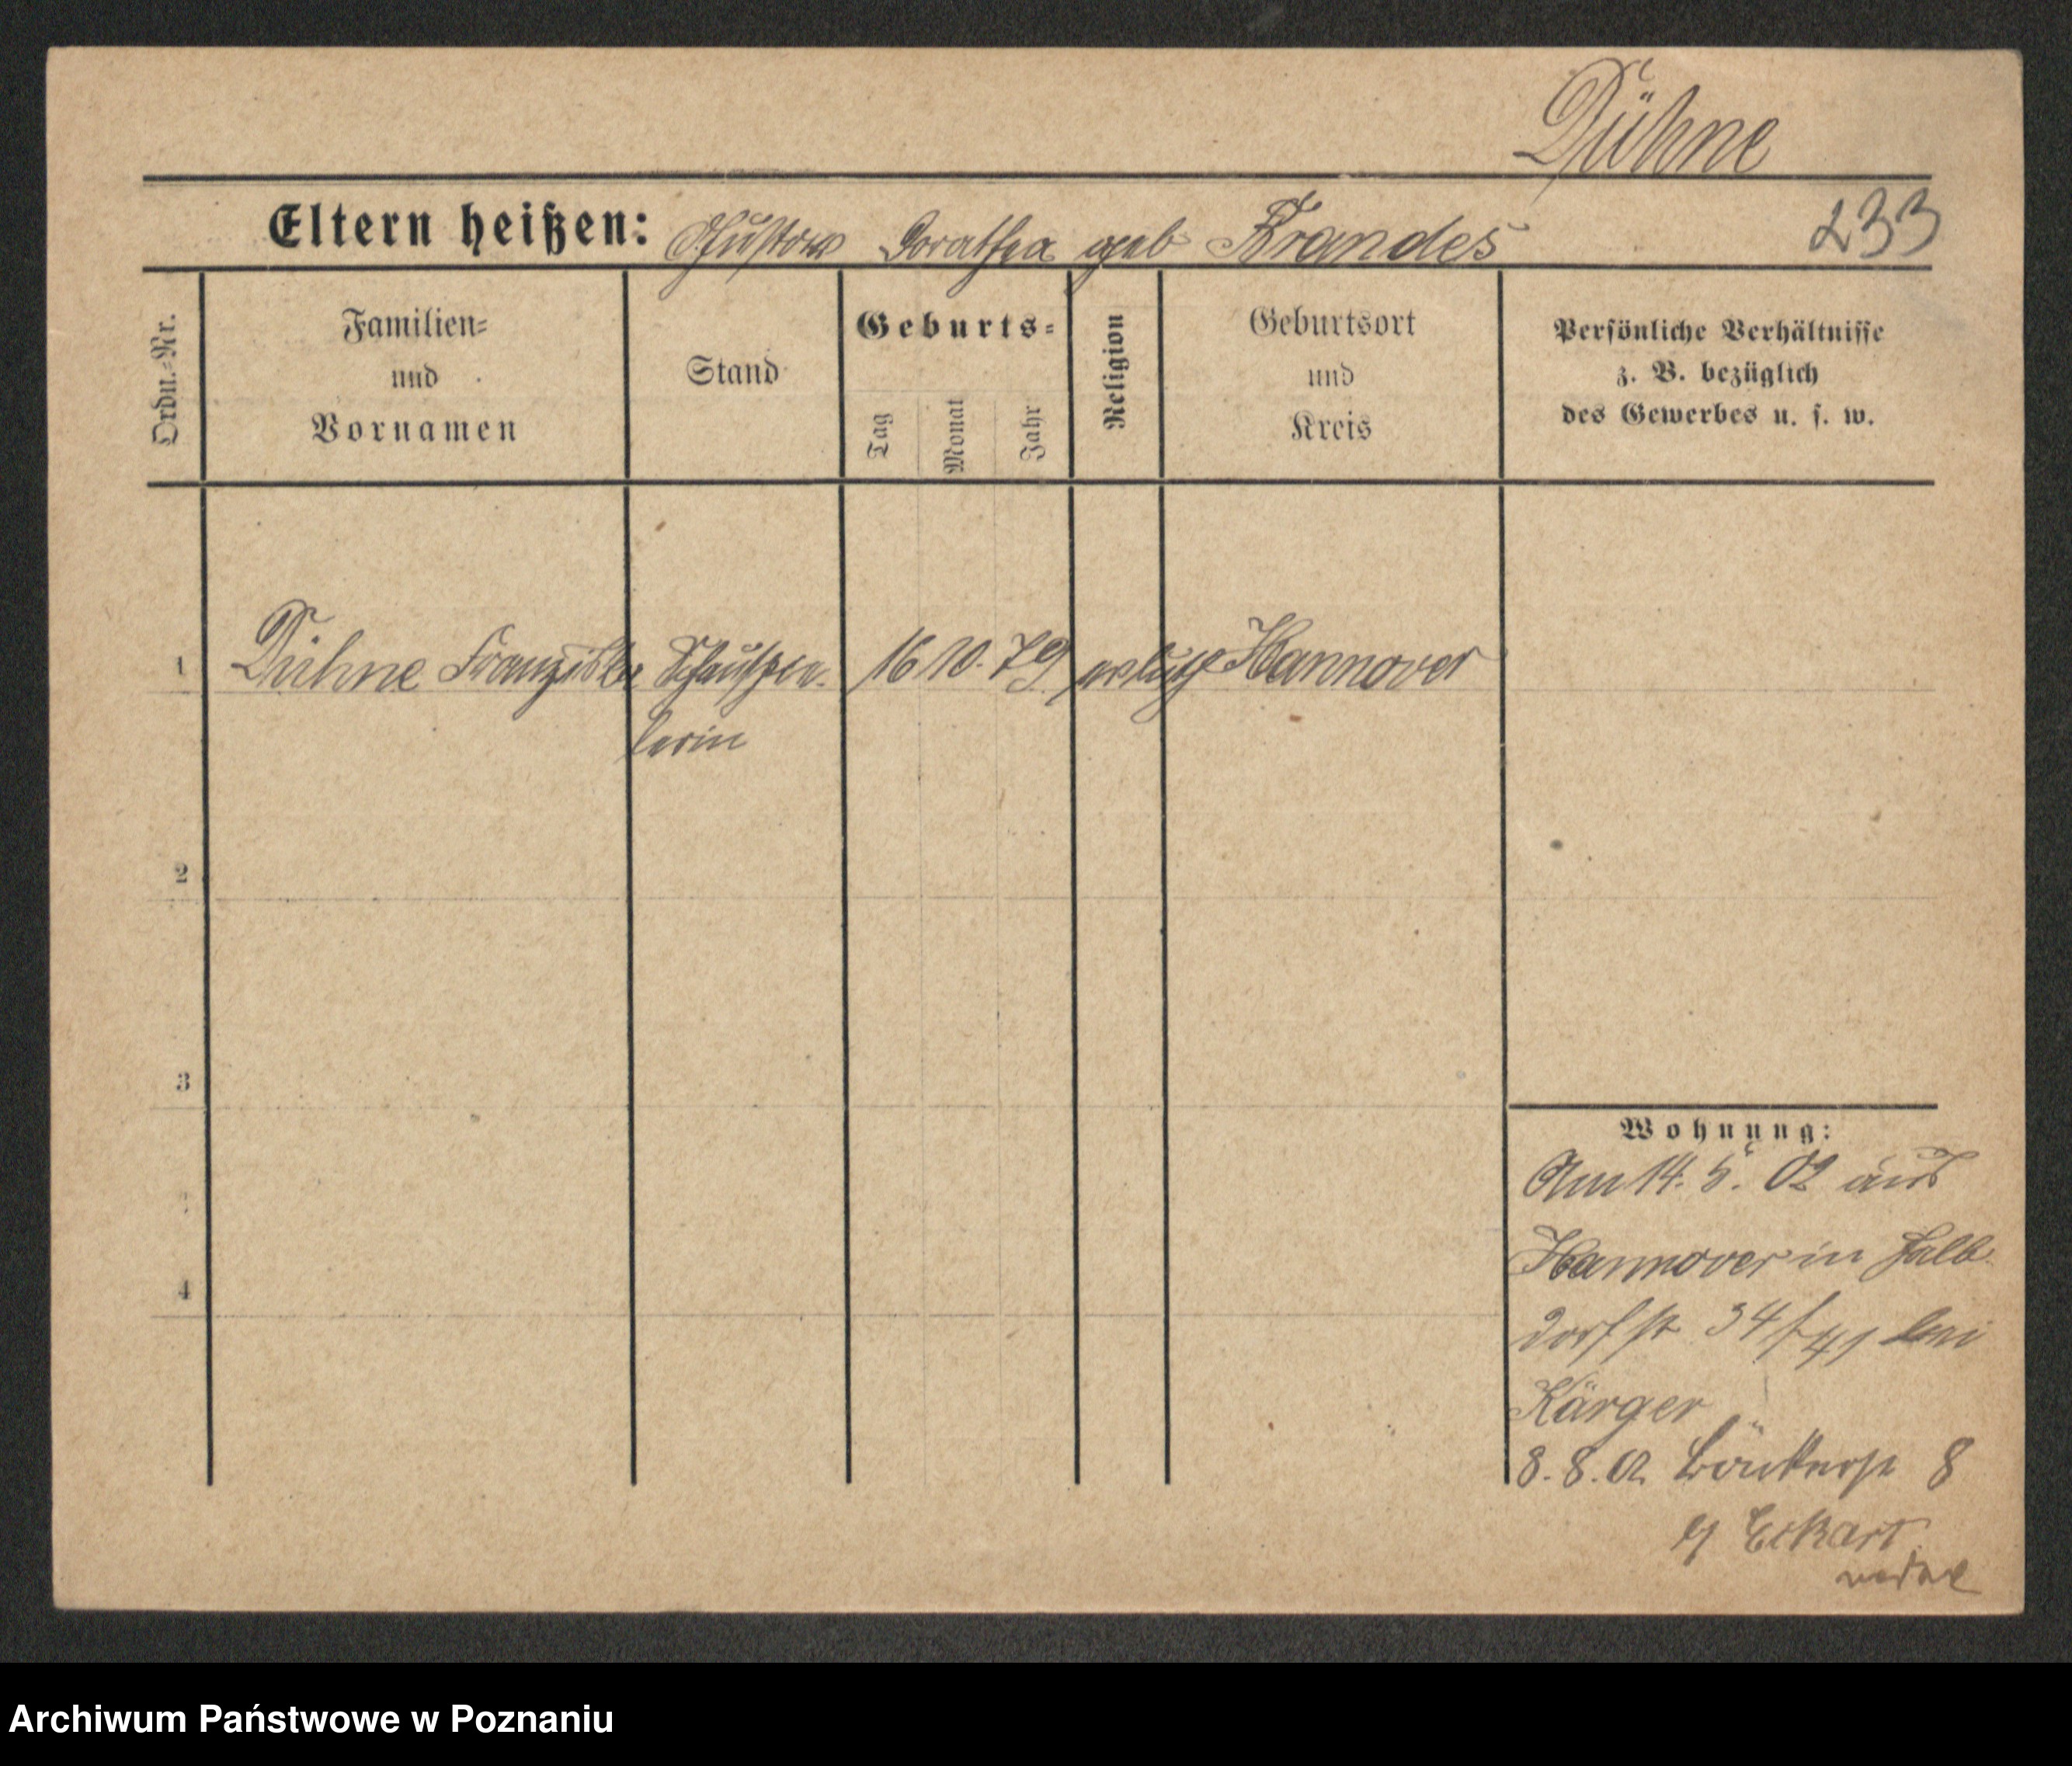 Dühne
Eltern heißen: Gustav Dorathea geb Brandes 233
Ordn.-Nr.
Familien-
und
Vornamen
Stand
Geburts-
Tag
Monat
Jahr
Religion
Geburtsort
und
Kreis
Persönliche Verhältnisse
z. B. bezüglich
des Gewerbes u. s. w.
1 Dühne Franziska Schauspie- 16 10. 79 Hannover
lerin
2
3
4
Wohnung:
Am 14. 5. 02 aus
Hannover in Halb
dorfst 34 bei
Kärger
8. 8. 02 8
Eckart
Archiwum Państwowe w Poznaniu